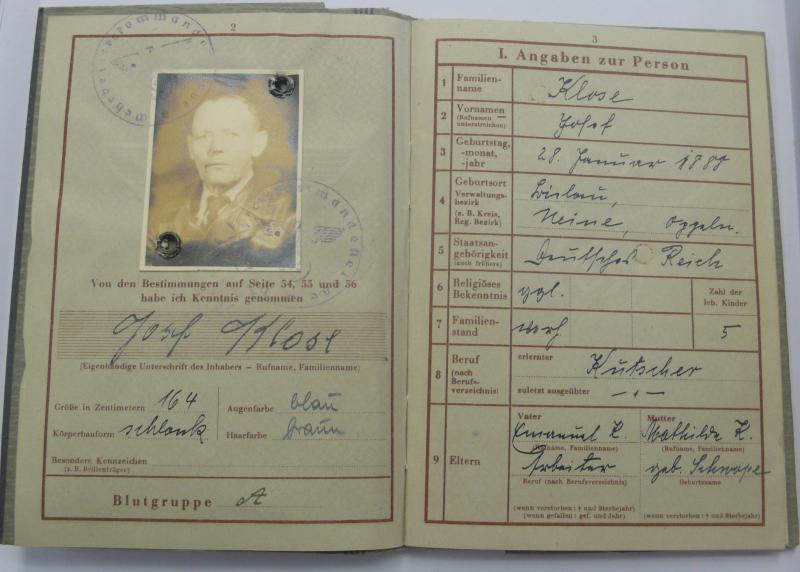 2
Von den Bestimmungen auf Seite 54, 55 und 56
habe ich Kenntnis genommen
Josef Klose
(Eigenhändige Unterschrift des Inhabers – Rufname, Familienname)
Größe in Zentimetern 164 Augenfarbe blau
Körperbauform schlank Haarfarbe braun
Besondere Kennzeichen
(z. B. Brillenträger)
Blutgruppe A
3
I. Angaben zur Person
1 Familien-
name Klose
2 Vornamen
(Rufnamen
unterstreichen) Josef
3 Geburtstag,
-monat,
-jahr 28. Januar
4 Geburtsort
Verwaltungs-
bezirk
(z. B. Kreis,
Reg. Bezirk) Bielau,
Neisse, Oppeln.
5 Staatsan-
gehörigkeit
(auch frühere) Deutsches Reich
6 Religiöses
Bekenntnis
Zahl der
leb. Kinder
7 Familien-
stand verh.
5
8 Beruf
(nach
Berufs-
verzeichnis)
erlernter Kutscher
zuletzt ausgeübter
9 Eltern
Vater Mutter
Emanuel K. Mathilde K.
(Rufname, Familienname) (Rufname, Familienname)
Arbeiter geb. Schwope
Beruf (nach Berufsverzeichnis) Geburtsname
(wenn verstorben: † und Sterbejahr)
(wenn gefallen: gef. und Jahr) (wenn verstorben: † und Sterbejahr)